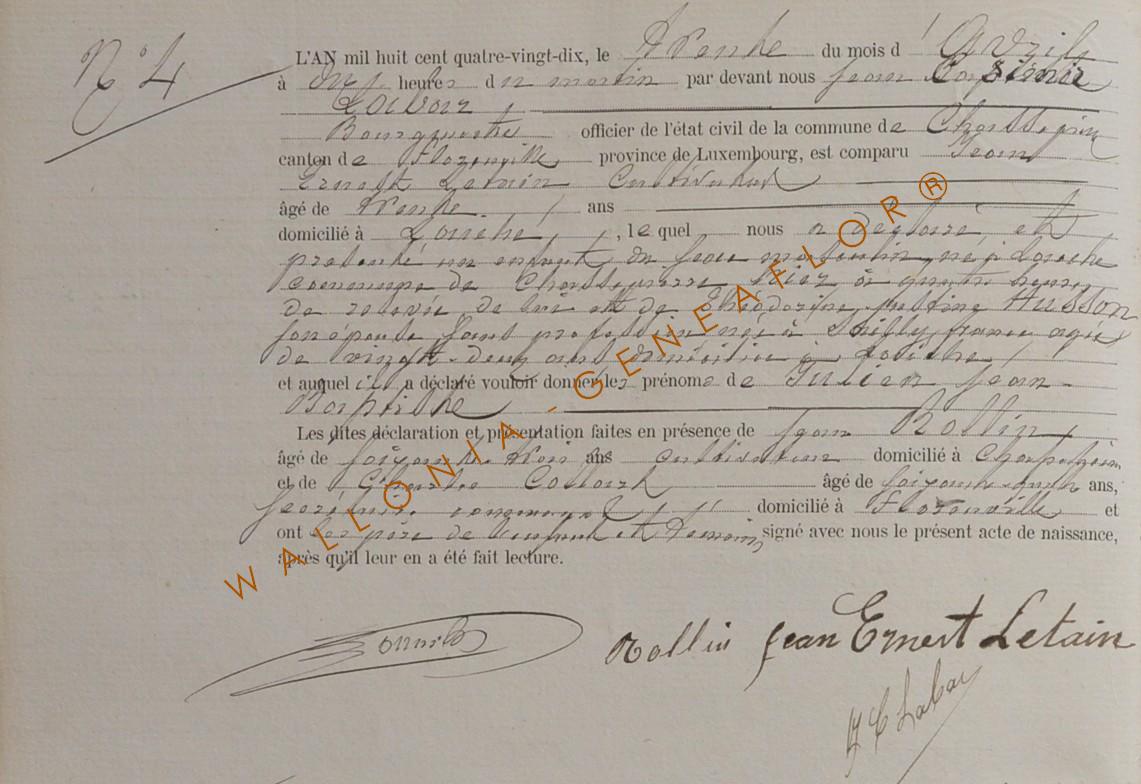 N° 4
L'AN mil huit cent quatre-vingt-dix, le Trente du mois d'Avril
à dix heures du matin par devant nous Jean
Bourgmestre officier de l'état civil de la commune de Chassepierre
canton de Florenville province de Luxembourg, est comparu Jean
Ernest Letain Cultivateur
âgé de trente ans
domicilié à Laiche, lequel nous a déclaré et
présenté un enfant du sexe masculin né à Laiche
commune de Chassepierre hier à quatre heures
de relevée de lui et de Husson
son épouse sans profession née à france agée
de vingt deux ans domiciliée à Laiche
et auquel il a déclaré vouloir donner les prénoms de Julien Jean
Baptiste
Les dites déclaration et présentation faites en présence de Jean Rollin
âgé de soixante trois ans cultivateur domicilié à Chassepierre
et de Collart âgé de soixante ans,
domicilié à Florenville et
ont les père de l'enfant et témoins signé avec nous le présent acte de naissance,
après qu'il leur en a été fait lecture.
Rollin Jean Ernest Letain
WALLONIA - GENEAFLOR ®